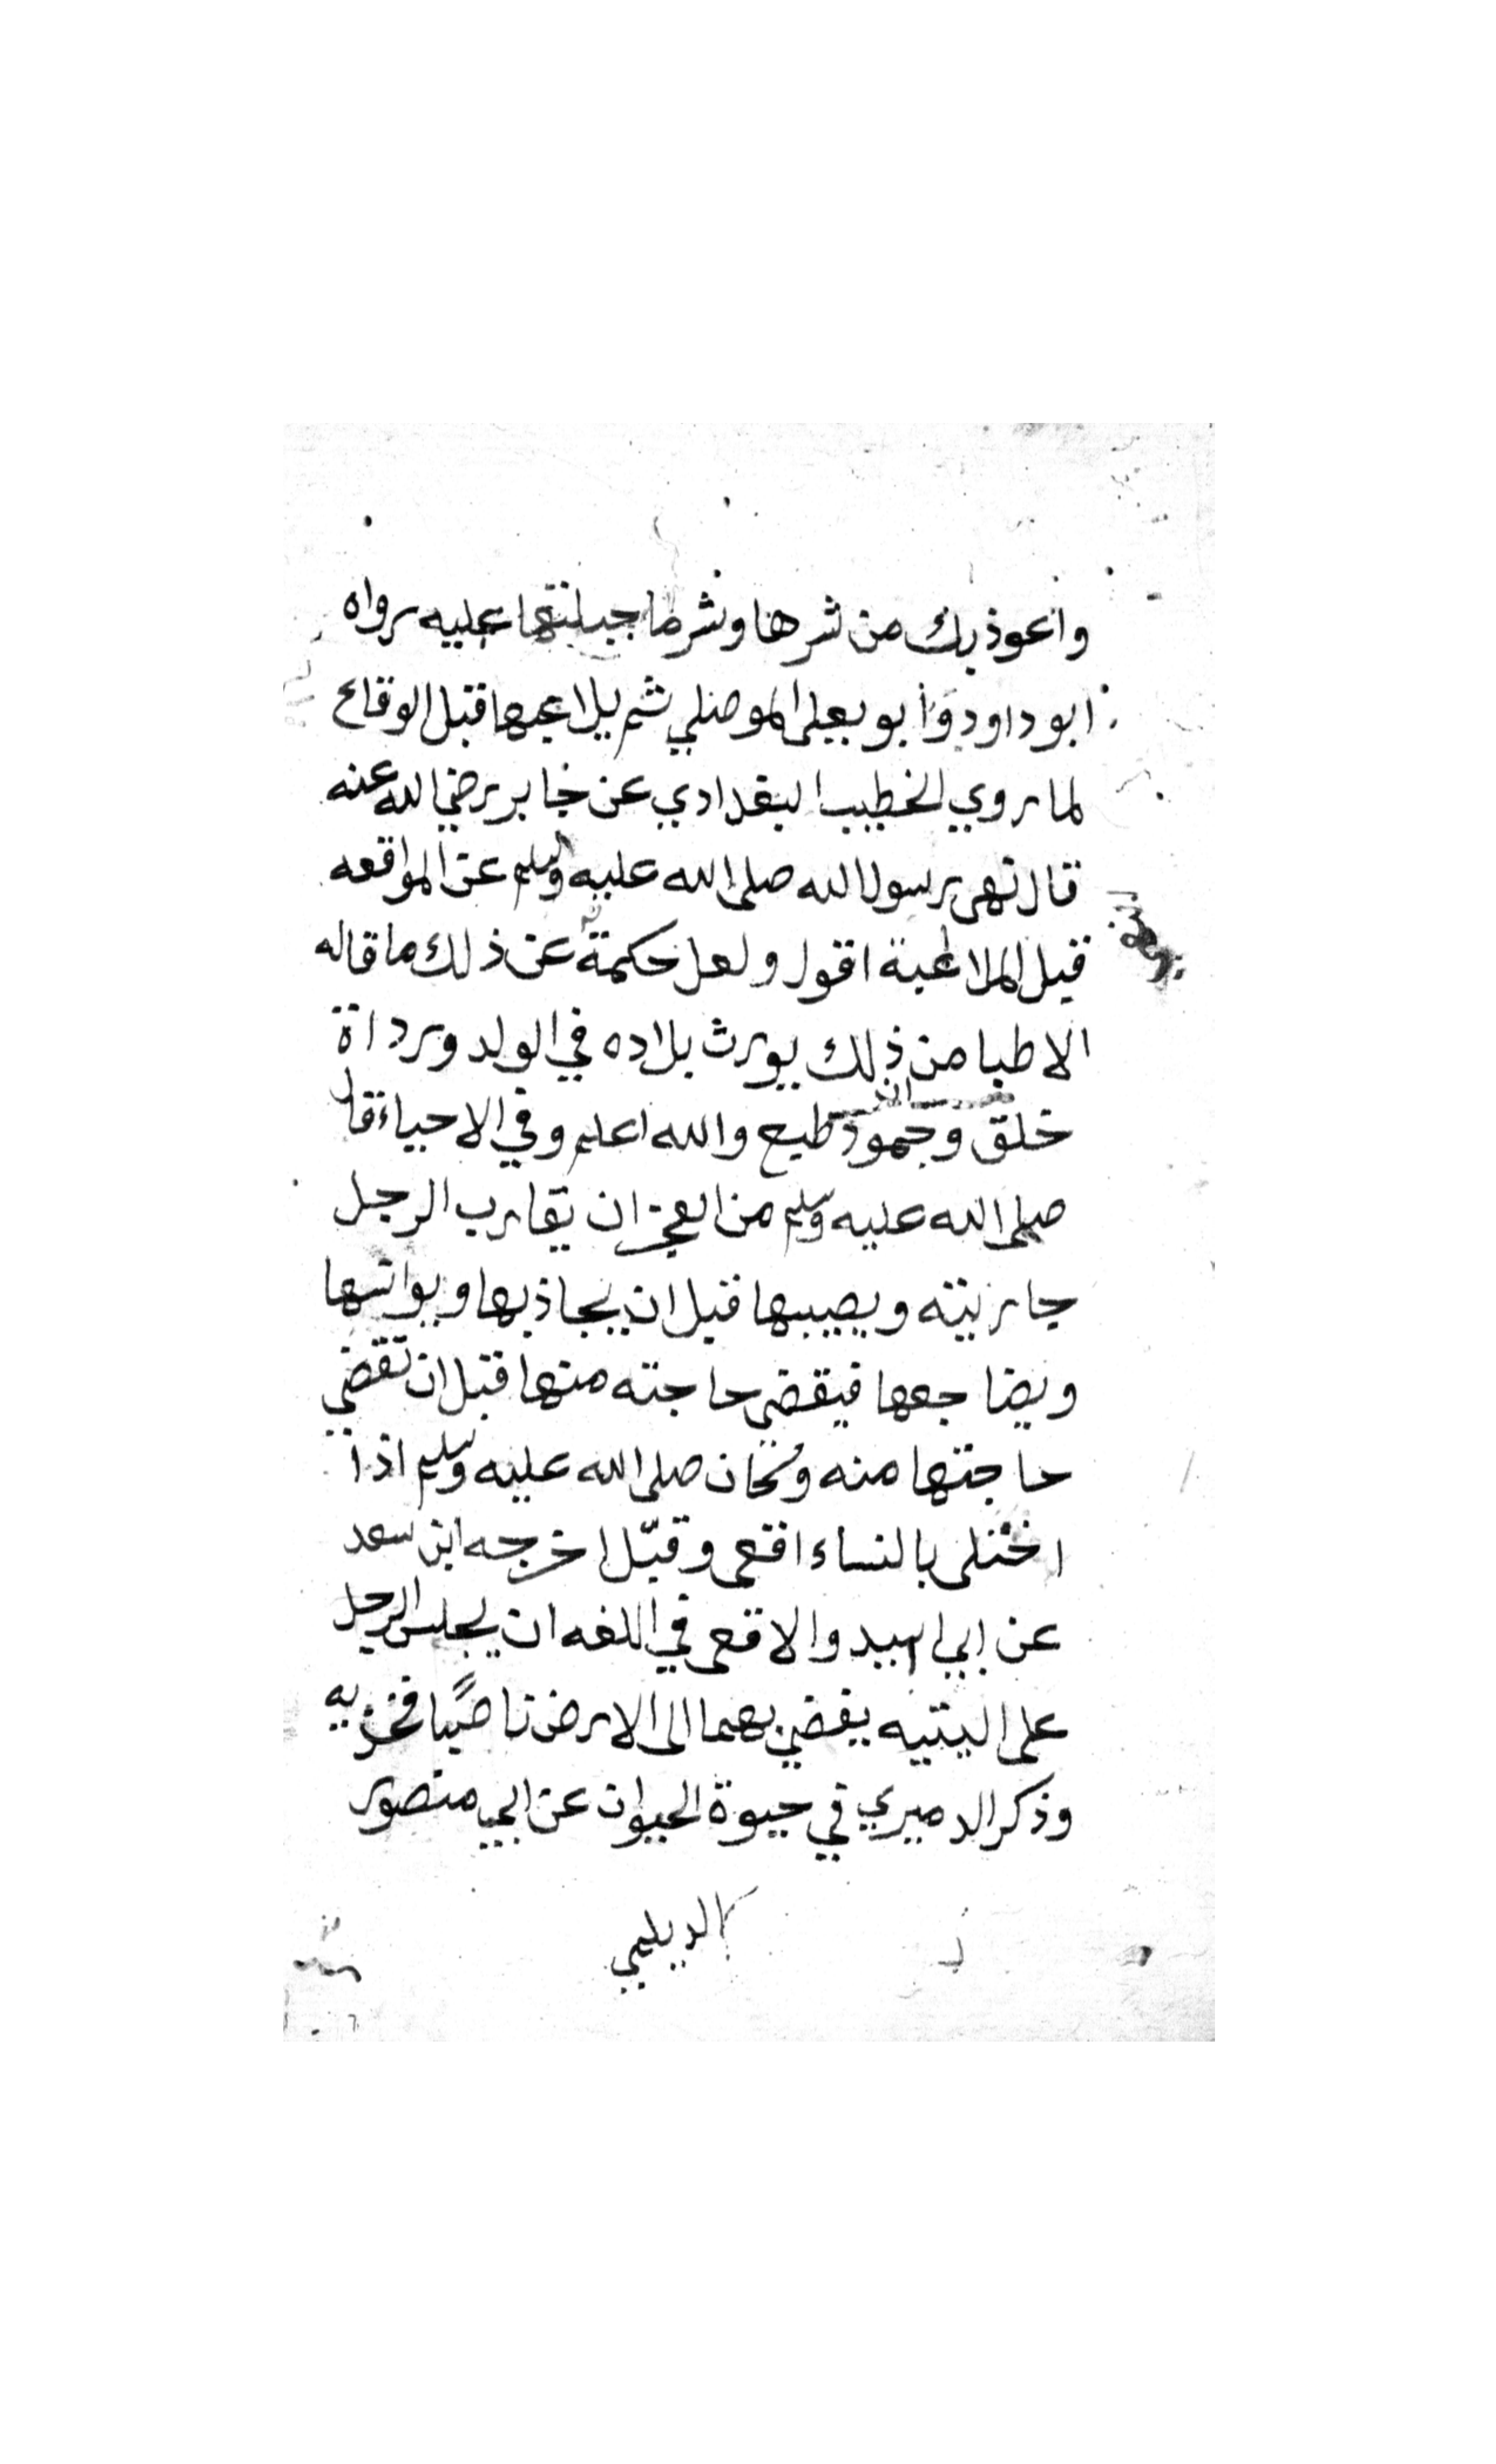 واعوذ بك من شرها وشر ما جبلتها عليه رواه
ابو داود وأبو يعلى الموصلي ثم يلاعبها قبل الوقاع
لما روي الخطيب البغدادي عن جابر رضي الله عنه
قال نهى رسول الله صلى الله عليه وسلم عن المواقعه
قبل الملاعبة اقول ولعل حكمة عن ذلك ما قاله
الاطبا من ذلك يورث بلاده في الولد ورداة
خلق وجمود طبع والله اعلم وفي الاحياء قال
صلى الله عليه وسلم من العجز ان يقارب الرجل
جاريته ويصيبها قبل ان يجاذبها ويوانسها
ويضاجعها فيقضى حاجته منها قبل ان تقضي
حاجتها منه وكان صلى الله عليه وسلم اذا
اختلى بالنساء اقعى وقبّل اخرجه ابن سعد
عن ابي اسيد والاقعى في اللغه ان يجلس الرجل
على اليتيه يفضي بهما الى الارض ناصبًا فخذيه
وذكر الدميري في حيوة الحيوان عن ابي منصور
الديلمي